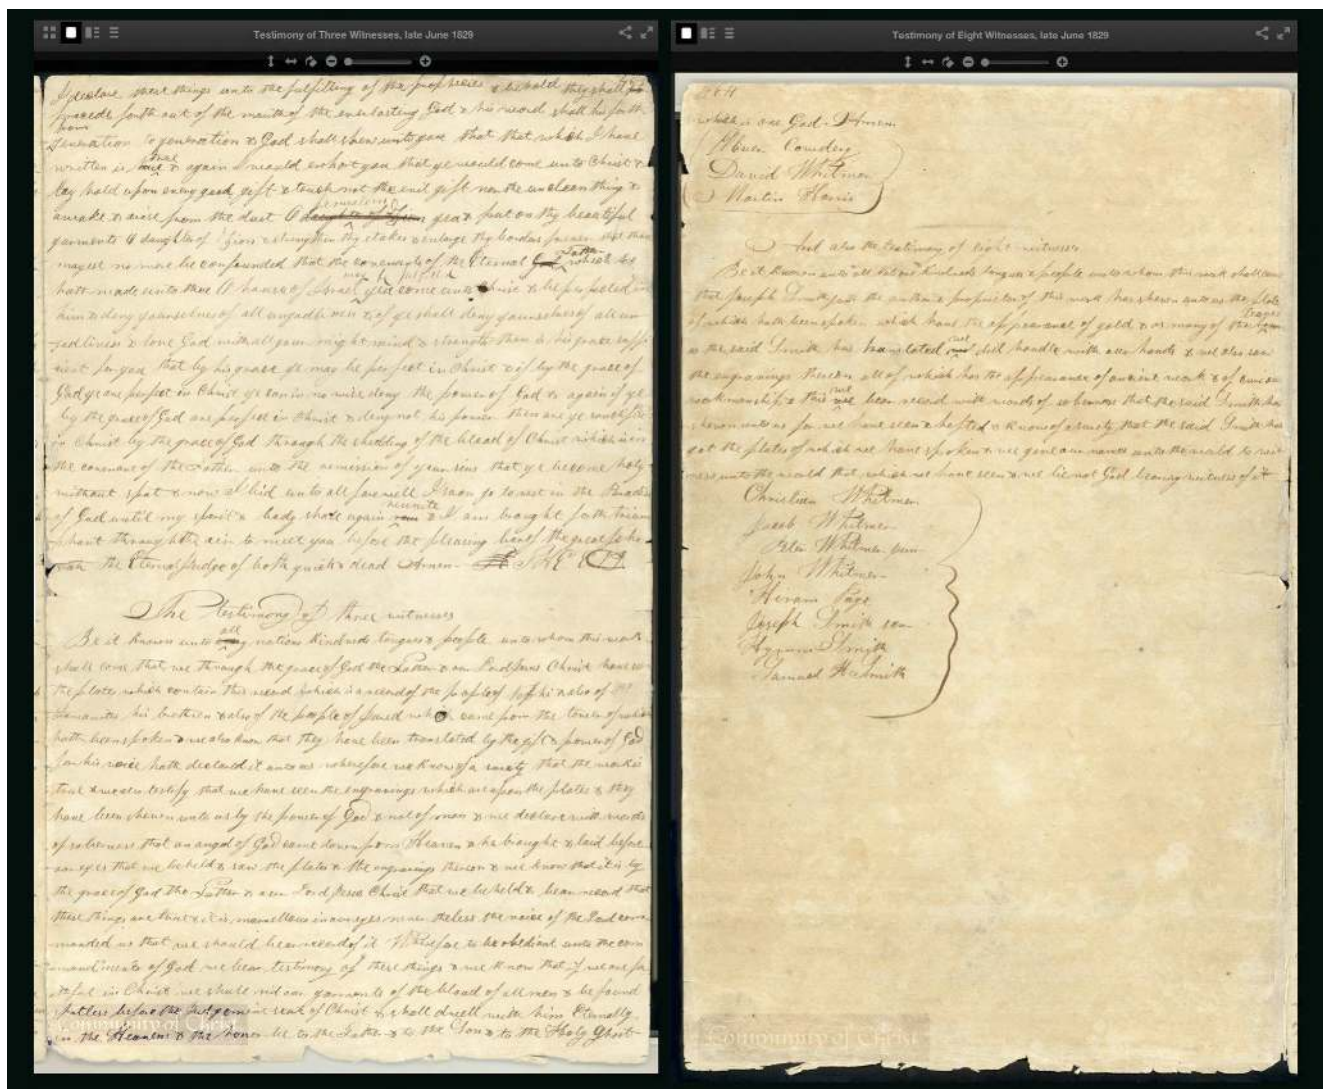 Testimony of Three Witnesses, late June 1829
I declare these things unto the fulfilling of the prophecies & behold they shall
proceed forth out of the mouth of the everlasting God & his word shall hiss forth
from
generation to generation & God shall shew unto you that that which I have
true
written is & again I would exhort you that ye would come unto Christ &
lay hold upon every good gift & touch not the evil gift nor the unclean thing &
Jerusalem
awake & arise from the dust O daughter of Zion yea & put on thy beautiful
garments O daughter of Zion & strengthen thy stakes & enlarge thy borders forever that thou
Father
mayest no more be confounded that the covenants of the Eternal God which he
hath made unto thee O house of Israel yea come unto Christ & be perfected in
him & deny yourselves of all ungodliness & if ye shall deny yourselves of all un
godliness & love God with all your might mind & strength then is his grace suffi
cient for you that by his grace ye may be perfect in Christ & if by the grace of
God ye are perfect in Christ ye can in no wise deny the power of God & again if ye
by the grace of God are perfect in Christ & deny not his power then are ye sanctified
in Christ by the grace of God through the shedding of the blood of Christ which is in
the covenant of the Father unto the remission of your sins that ye become holy
without spot & now I bid unto all farewell I soon go to rest in the Paradise
reunite
of God until my spirit & body shall again & I am brought forth trium
phant through the air to meet you before the pleasing bar of the great Jeho
vah the Eternal Judge of both quick & dead Amen
The testimony of three witnesses
all
Be it known unto nations kindreds tongues & people unto whom this work
shall come that we through the grace of God the Father & our Lord Jesus Christ have seen
the plates which contain this record which is a record of the people of Nephi & also of the
Lamanites his brethren & also of the people of Jared which came from the tower of which
hath been spoken & we also know that they have been translated by the gift & power of God
for his voice hath declared it unto us wherefore we know of a surety that the work is
true & we also testify that we have seen the engravings which are upon the plates & they
have been shewn unto us by the power of God & not of man & we declare with words
of soberness that an angel of God came down from Heaven & he brought & laid before
our eyes that we beheld & saw the plates & the engravings thereon & we know that it is by
the grace of God the Father & our Lord Jesus Christ that we beheld & bear record that
these things are true & it is marvellous in our eyes never theless the voice of the Lord com
manded us that we should bear record of it Wherefore to be obedient unto the com
mandments of God we bear testimony of these things & we know that if we are fa
ithful in Christ we shall rid our garments of the blood of all men & be found
spotless before the Judgment seat of Christ & shall dwell with him Eternally
in the Heavens & the honor be to the Father & to the Son & to the Holy Ghost
Community of Christ
Testimony of Eight Witnesses, late June 1829
464
which is one God. Amen
Oliver Cowdery
David Whitmer
Martin Harris
And also the testimony of eight witnesses
Be it known unto all nations kindreds tongues & people unto whom this work shall come
that Joseph Smith jun the author & proprietor of this work has shewn unto us the plates
leaves
of which hath been spoken which have the appearance of gold & as many of the
we
as the said Smith has translated did handle with our hands & we also saw
the engravings thereon all of which has the appearance of ancient work & of curious
we
workmanship & this bear record with words of soberness that the said Smith has
shewn unto us for we have seen & hefted & know of a surety that the said Smith has
got the plates of which we have spoken & we give our names unto the world to wit
ness unto the world that which we have seen & we lie not God bearing witness of it
Christian Whitmer
Jacob Whitmer
Peter Whitmer jun
John Whitmer
Hiram Page
Joseph Smith sen
Hyrum Smith
Samuel H Smith
Community of Christ